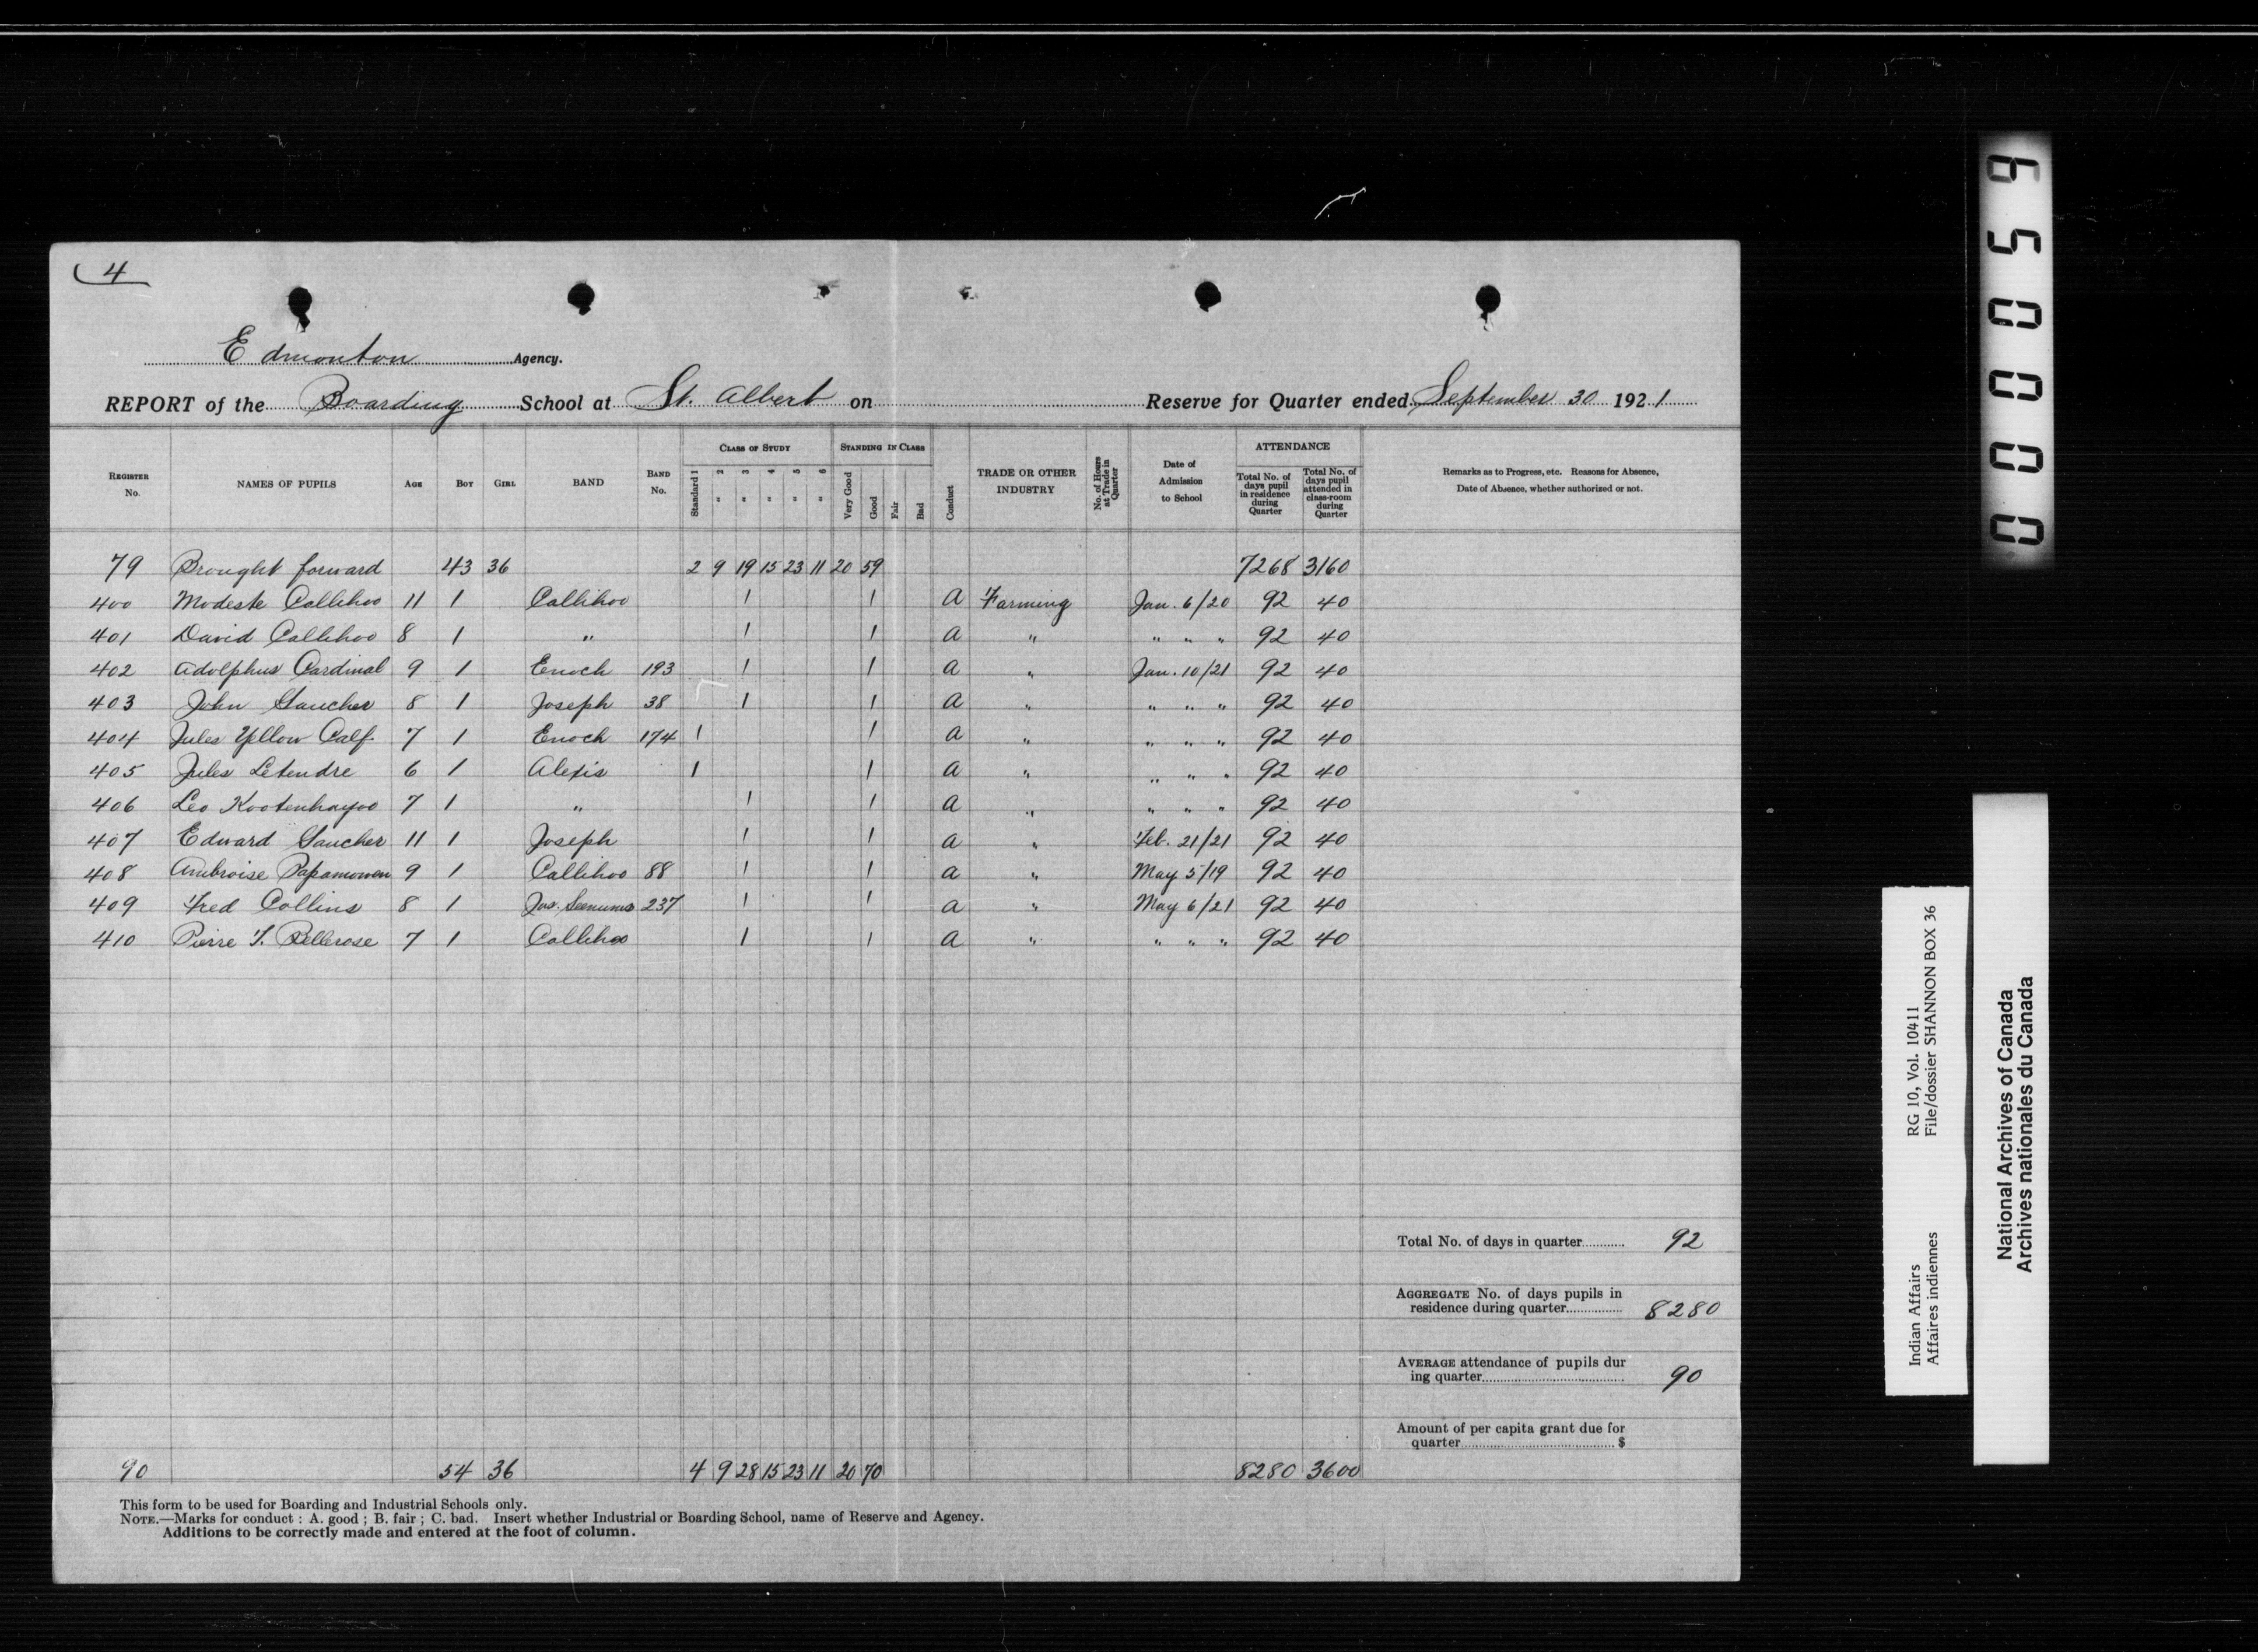 4
Edmonton Agency.
REPORT of the Boarding School at St. Albert on Reserve for Quarter ended September 30 1921
REGISTER No. NAMES OF PUPILS AGE BOY GIRL BAND BAND No. CLASS OF STUDY Standard 1 " 2 " 3 " 4 " 5 " 6 STANDING IN CLASS Very Good Good Fair Bad Conduct TRADE OR OTHER INDUSTRY No. of Hours at Trade in Quarter Date of Admission to School ATTENDANCE Total No. of days pupil in residence during Quarter Total No. of days pupil attended in class-room during Quarter Remarks as to Progress, etc. Reasons for Absence, Date of Absence, whether authorized or not.
79 Brought forward 43 36 2 9 19 15 23 11 20 59 7268 3160
400 Modeste Callihoo 11 1 Callihoo 1 1 A Farming Jan. 6/20 92 40
401 David Callihoo 8 1 " 1 1 A " " " " 92 40
402 Adolphus Cardinal 9 1 Enoch 193 1 1 A " Jan. 10/21 92 40
403 John Gaucher 8 1 Joseph 38 1 1 A " " " " 92 40
404 Jules Yellow Calf 7 1 Enoch 174 1 1 A " " " " 92 40
405 Jules Letendre 6 1 Alexis 1 1 A " " " " 92 40
406 Leo Kootenhayoo 7 1 " 1 1 A " " " " 92 40
407 Edward Gaucher 11 1 Joseph 1 1 A " Feb. 21/21 92 40
408 Ambroise Papamowen 9 1 Callihoo 88 1 1 A " May 5/19 92 40
409 Fred Collins 8 1 Jas. 237 1 1 A " May 6/21 92 40
410 Pierre Y. Bellerose 7 1 Callihoo 1 1 A " " " " 92 40
Total No. of days in quarter 92
AGGREGATE No. of days pupils in
residence during quarter 8280
AVERAGE attendance of pupils dur
ing quarter 90
Amount of per capita grant due for
quarter $
90 54 36 4 9 28 15 23 11 20 70 8280 3600
This form to be used for Boarding and Industrial Schools only.
NOTE.—Marks for conduct : A. good ; B. fair ; C. bad. Insert whether Industrial or Boarding School, name of Reserve and Agency.
Additions to be correctly made and entered at the foot of column.
000059
Indian Affairs RG 10, Vol. 10411
Affaires indiennes File/dossier SHANNON BOX 36
National Archives of Canada
Archives nationales du Canada